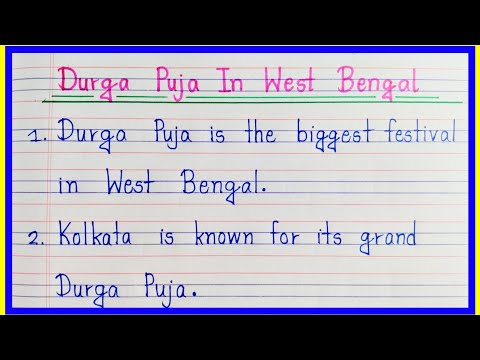 Durga Puja In West Bengal
1. Durga Puja is the biggest festival
in West Bengal.
2. Kolkata is known for its grand
Durga Puja.